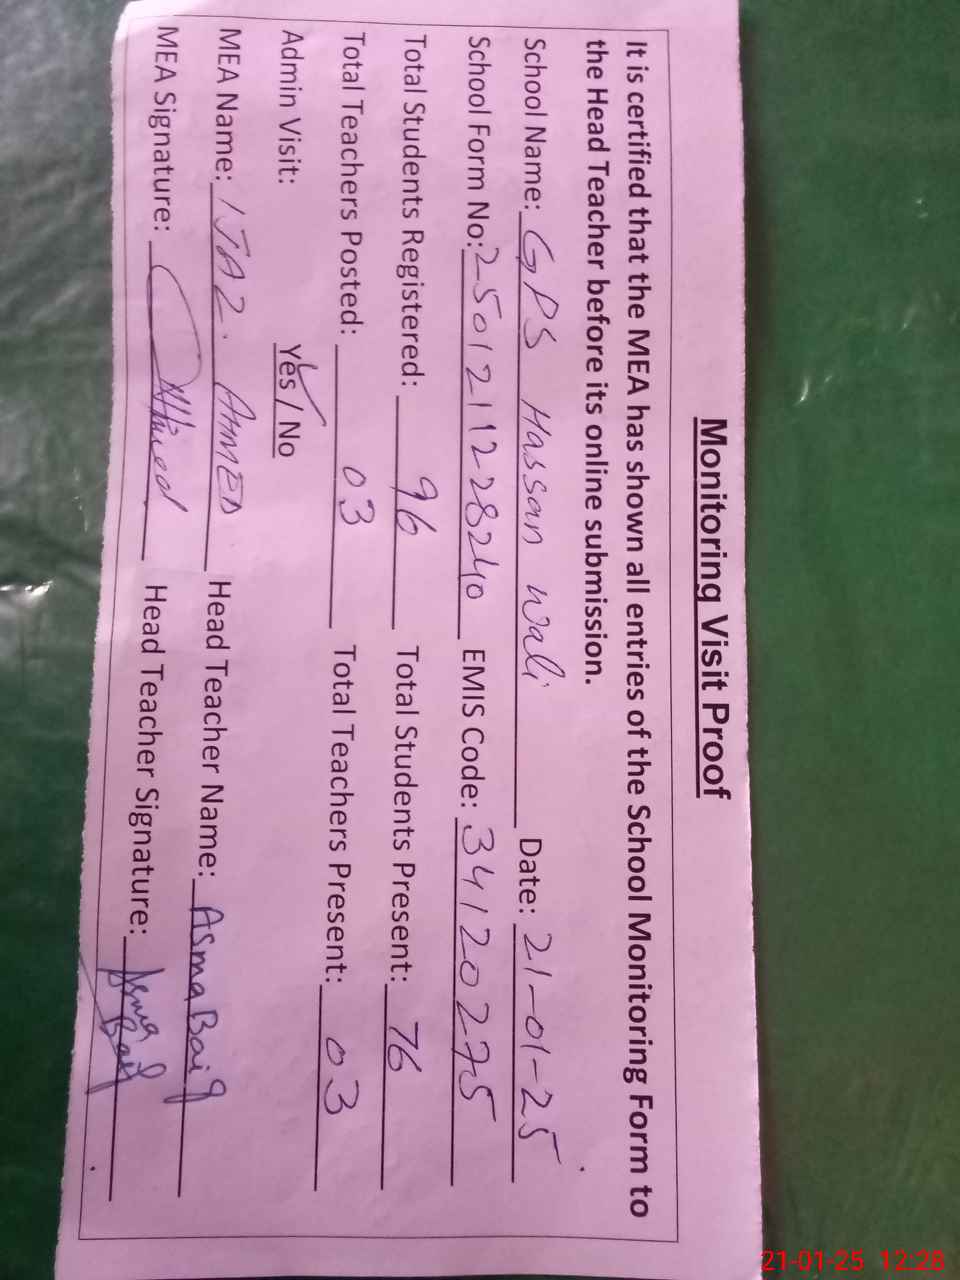 Monitoring Visit Proof
It is certified that the MEA has shown all entries of the School Monitoring Form to
the Head Teacher before its online submission.
School Name: GPS Hassan Wali Date: 21-01-25
School Form No: 2501211228240 EMIS Code: 34120275
Total Students Registered: 96 Total Students Present: 76
Total Teachers Posted: 03 Total Teachers Present: 03
Admin Visit: Yes / No
MEA Name: IJAZ. AHMED Head Teacher Name: Asma Baig
MEA Signature: Ahmed Head Teacher Signature: Asma Baig
21-01-25 12:28